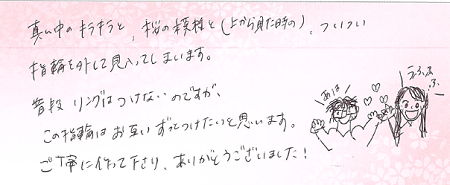 真ん中のキラキラと、桜の模様と(上から見た時の)、ついつい
指輪を外して見入ってしまいます。
普段 リングはつけないのですが、
この指輪はお互い ずっとつけたいと思います。
ご丁寧に作って下さり、ありがとうございました!
あは
うふふふ